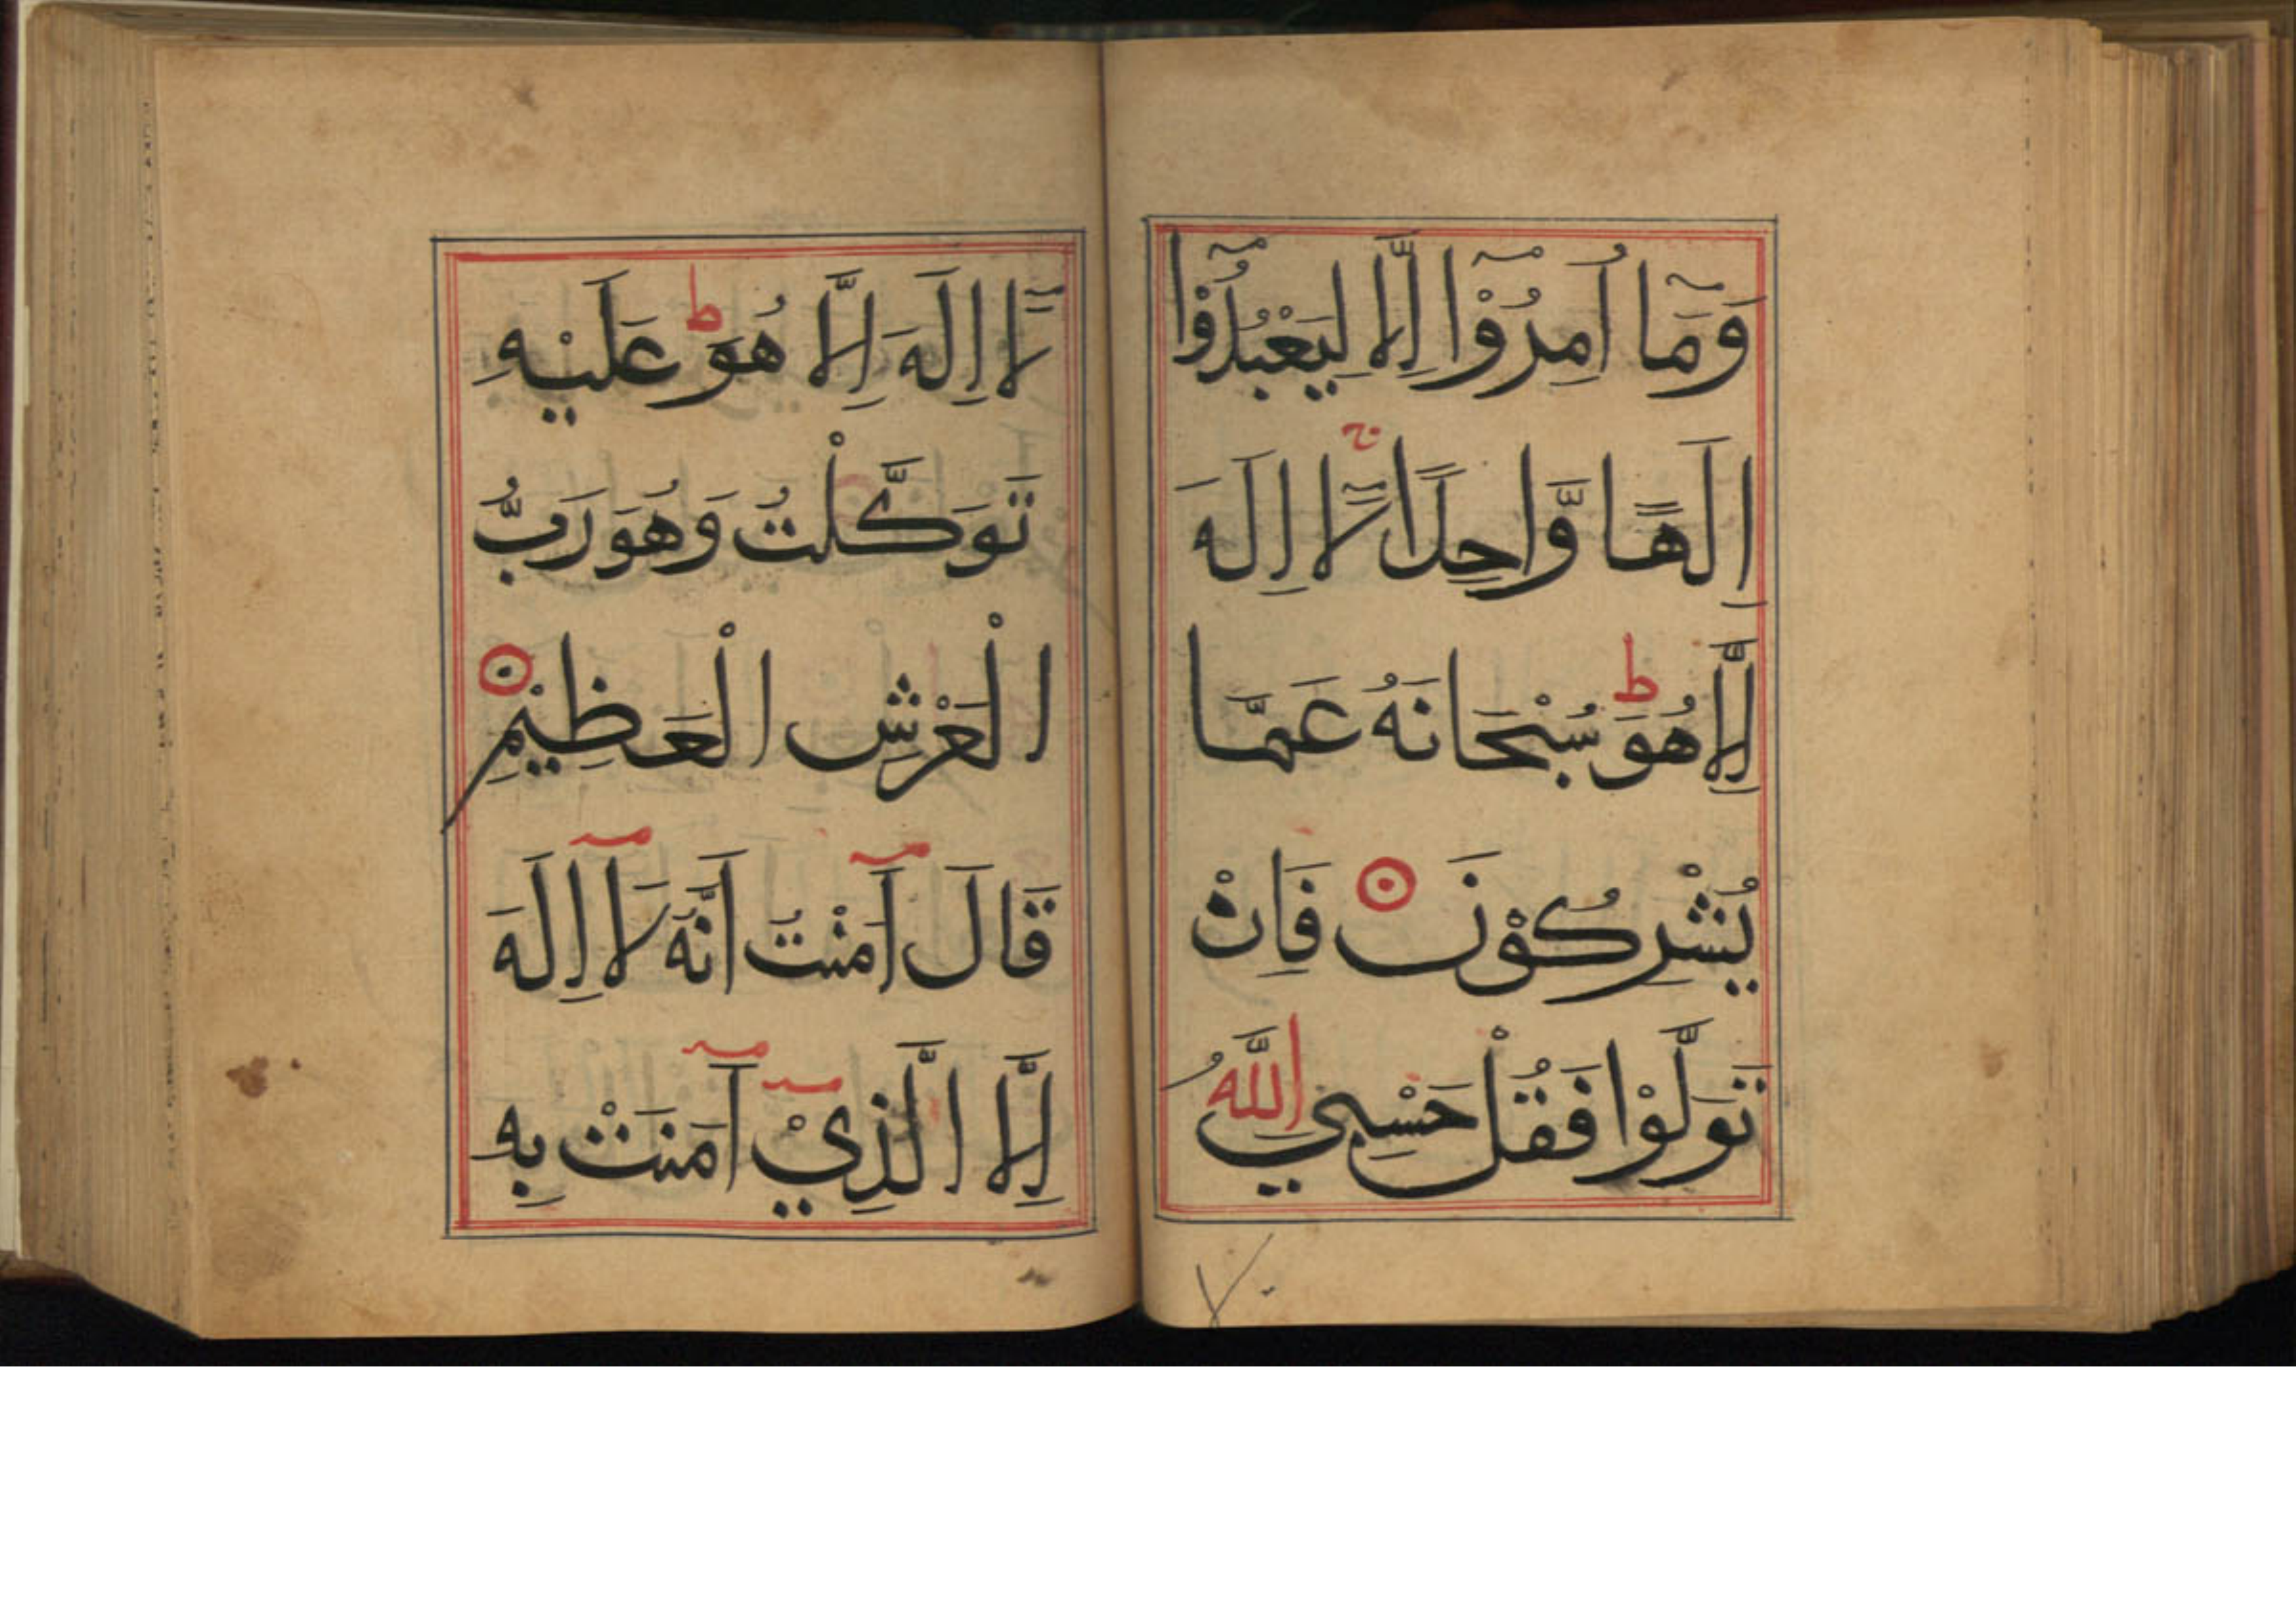 وَمَآ اُمِرُوْٓا اِلَّا لِيَعْبُدُوْٓا
اِلَهًا وَّاحِدًا ج لَآ اِلَهَ
اِلَّا هُوَ ط سُبْحَانَهُ عَمَّا
يُشْرِكُوْنَ ۝ فَاِنْ
تَوَلَّوْا فَقُلْ حَسْبِيَ اللَّهُ
٧٠
لَآ اِلَهَ اِلَّا هُوَ ط عَلَيْهِ
تَوَكَّلْتُ وَهُوَ رَبُّ
الْعَرْشِ الْعَظِيْمِ ۝
قَالَ آمَنْتُ اَنَّهُ لَآ اِلَهَ
اِلَّا الَّذِيْٓ آمَنَتْ بِهِ